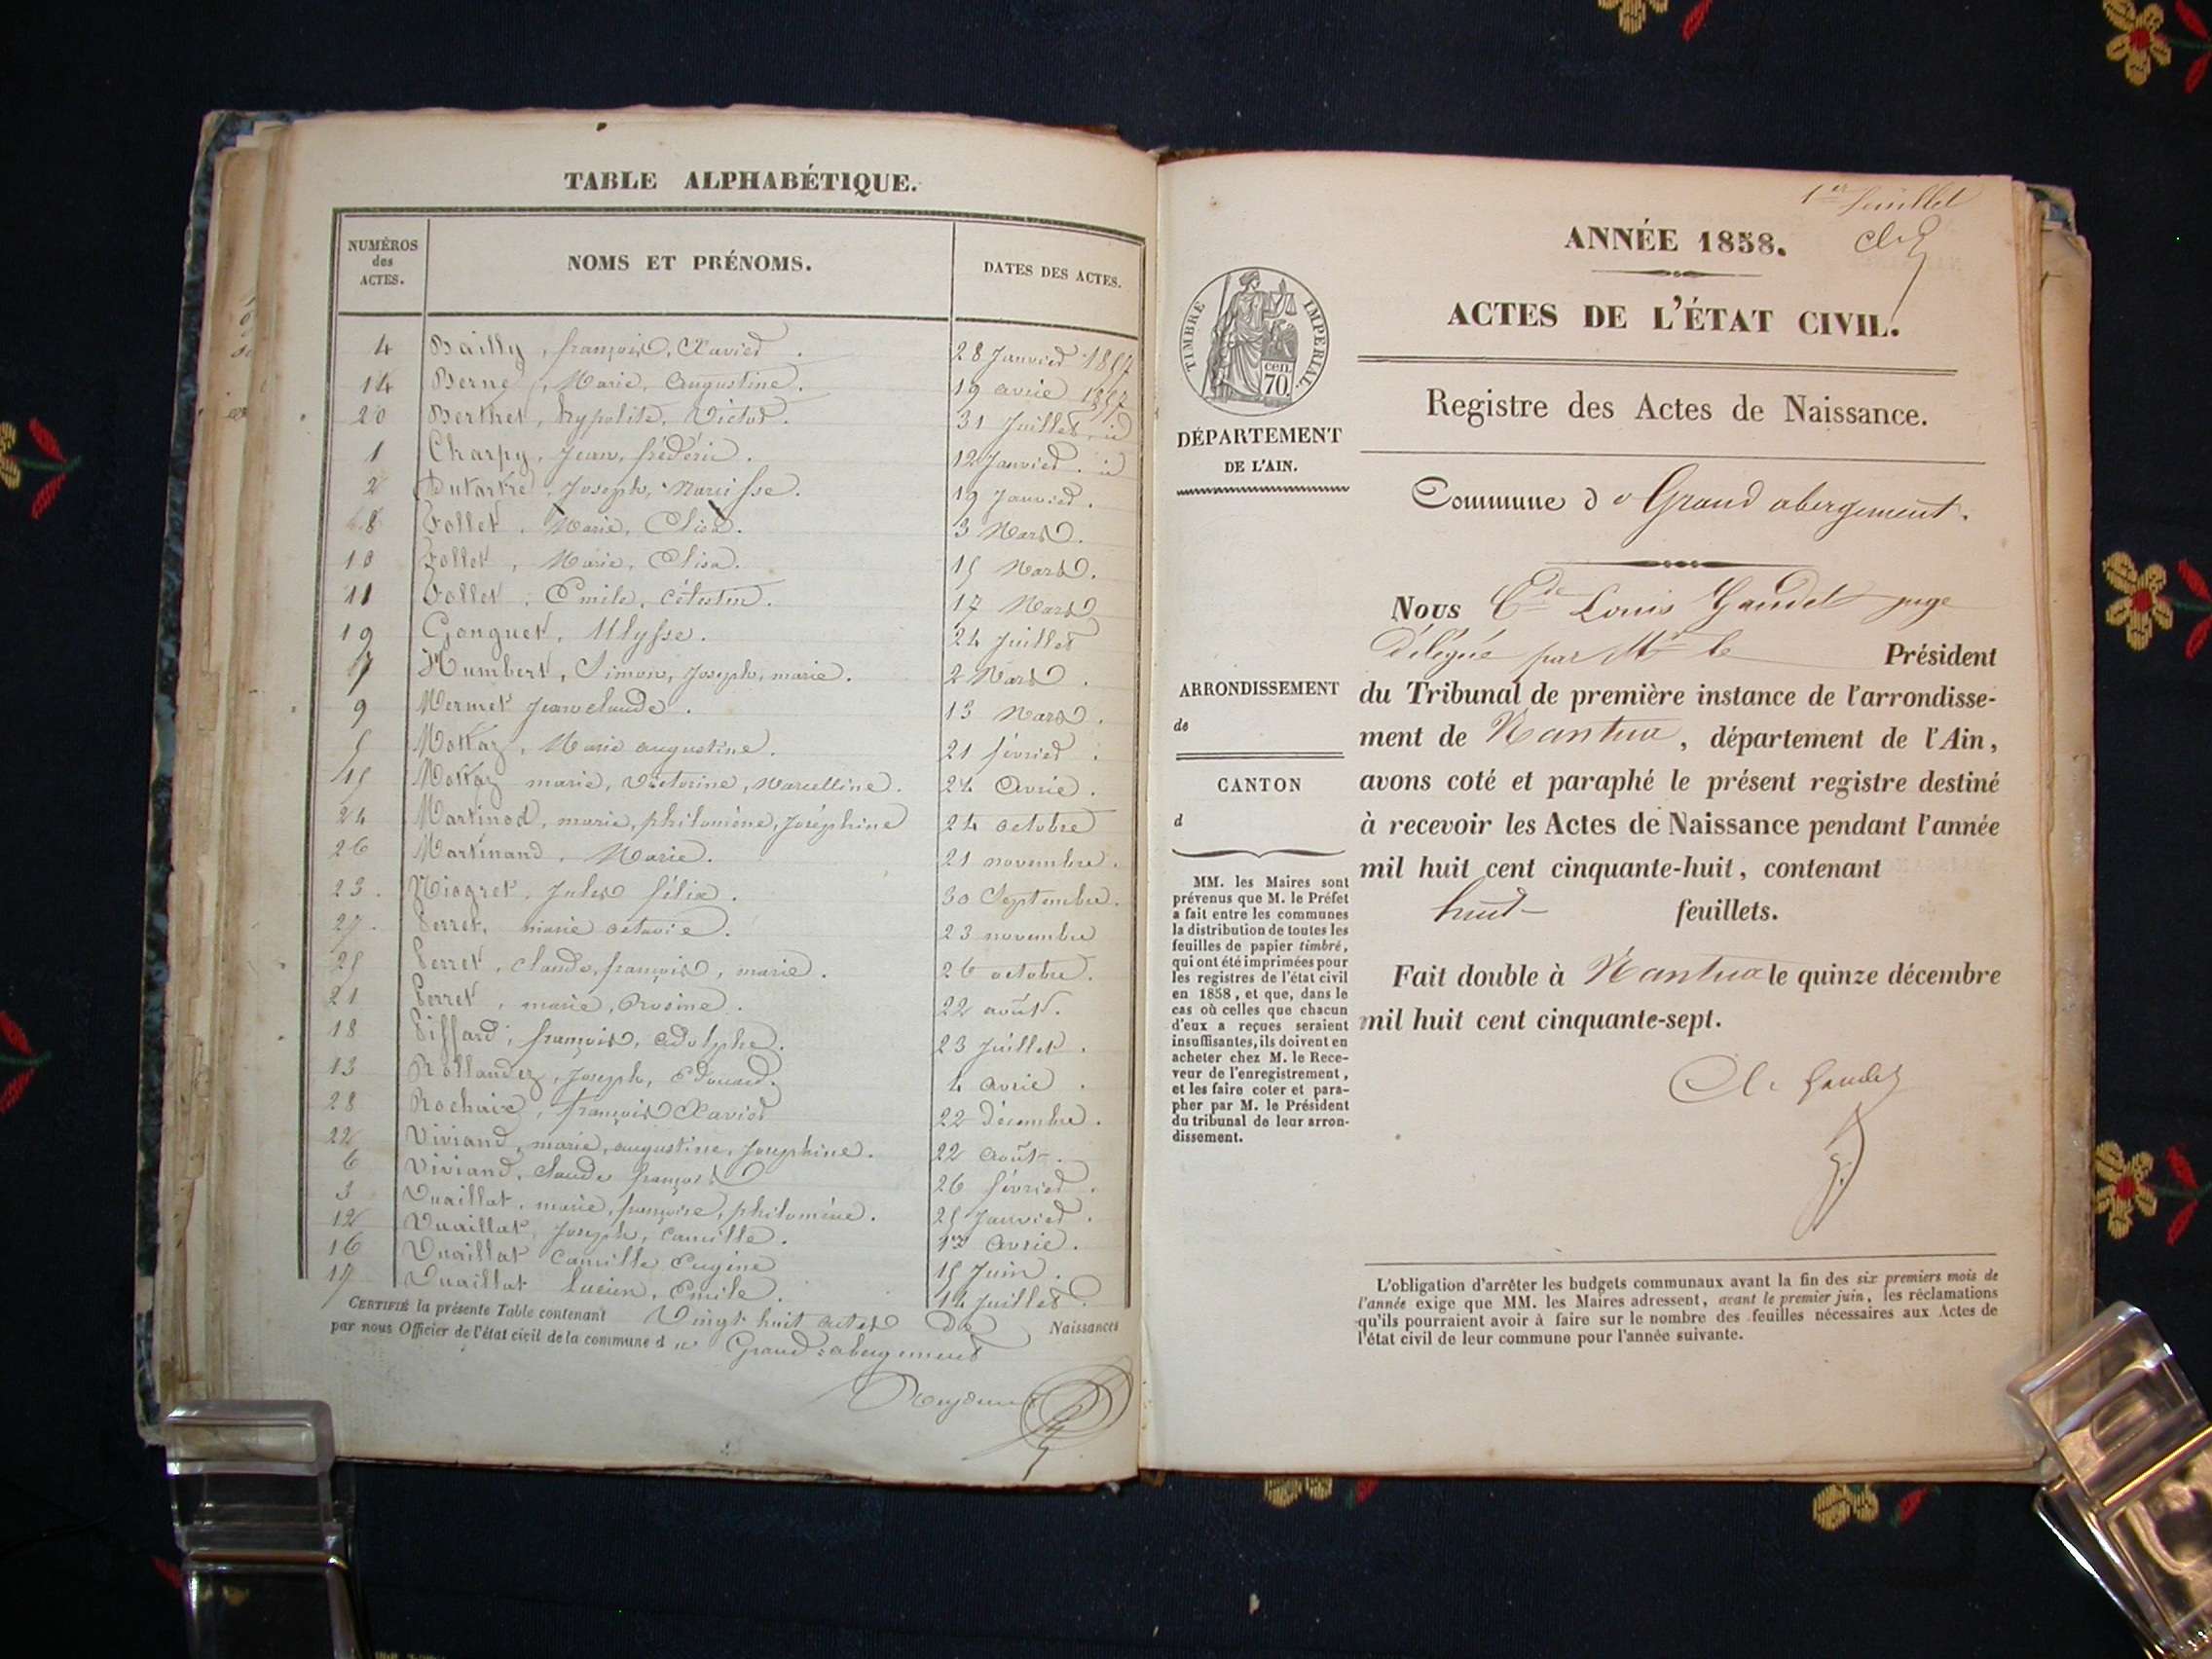 TABLE ALPHABÉTIQUE.
NUMÉROS des ACTES.
NOMS ET PRÉNOMS.
DATES DES ACTES.
4 Bailly, françois, Xavier. 28 Janvier 1857
14 Berne, Marie, Augustine. 19 avril 1857
20 Berthet, hypolite, Victor. 31 Juillet id
1 Charpy, Jean, frédéric. 12 Janvier. id
2 Dutartre, Joseph, Narcisse. 19 Janvier.
8 Follet, Marie, Elisa. 3 Mars.
10 Follet, Marie, Elisa. 15 Mars.
11 Follet, Emile, Célestin. 17 Mars
19 Gonguet, Ulysse. 24 Juillet
7 Humbert, Simon, Joseph, marie. 2 Mars.
9 Mermet Jean claude. 13 Mars.
5 Mottaz, Marie augustine. 21 février.
15 Mottaz marie, Victorine, Marcelline. 24 Avril.
24 Martinod, marie, philomène, Joséphine 24 octobre
26 Martinand, Marie. 21 novembre.
23. Niogret, Jules félix. 30 Septembre.
27. Perret, marie octavie. 23 novembre
25 Perret, claude, françois, marie. 26 octobre.
21 Perret, marie, Rosine. 22 août.
18 Piffard, françois, adolphe. 23 Juillet.
13 Rollandez, Joseph, Edouard. 4 avril.
28 Rochaix, françois Xavier 22 décembre.
22 Viviand, marie, augustine, Joséphine. 22 août.
6 Viviand, claude françois 26 février.
3 Vuaillat, marie, françoise, philomène. 25 Janvier.
12 Vuaillat, Joseph, camille. 1er Avril.
16 Vuaillat Camille Eugène 15 Juin.
17 Vuaillat Lucien, Emile. 14 Juillet.
CERTIFIÉ la présente Table contenant Vingt huit actes de Naissances
par nous Officier de l'état civil de la commune d u Grand-abergement
1er feuillet
ANNÉE 1858.
ACTES DE L'ÉTAT CIVIL.
TIMBRE IMPERIAL.
cen. 70.
DÉPARTEMENT
DE L'AIN.
Registre des Actes de Naissance.
Commune d u Grand abergement.
Nous Cde Louis Gaudet juge
délégué par Mr le Président
du Tribunal de première instance de l'arrondisse-
ment de Nantua, département de l'Ain,
avons coté et paraphé le présent registre destiné
à recevoir les Actes de Naissance pendant l'année
mil huit cent cinquante-huit, contenant
huit feuillets.
Fait double à Nantua le quinze décembre
mil huit cent cinquante-sept.
Cl. Gaudet
ARRONDISSEMENT
de
CANTON
d
MM. les Maires sont
prévenus que M. le Préfet
a fait entre les communes
la distribution de toutes les
feuilles de papier timbré,
qui ont été imprimées pour
les registres de l'état civil
en 1858, et que, dans le
cas où celles que chacun
d'eux a reçues seraient
insuffisantes, ils doivent en
acheter chez M. le Rece-
veur de l'enregistrement,
et les faire coter et para-
pher par M. le Président
du tribunal de leur arron-
dissement.
L'obligation d'arrêter les budgets communaux avant la fin des six premiers mois de
l'année exige que MM. les Maires adressent, avant le premier juin, les réclamations
qu'ils pourraient avoir à faire sur le nombre des feuilles nécessaires aux Actes de
l'état civil de leur commune pour l'année suivante.